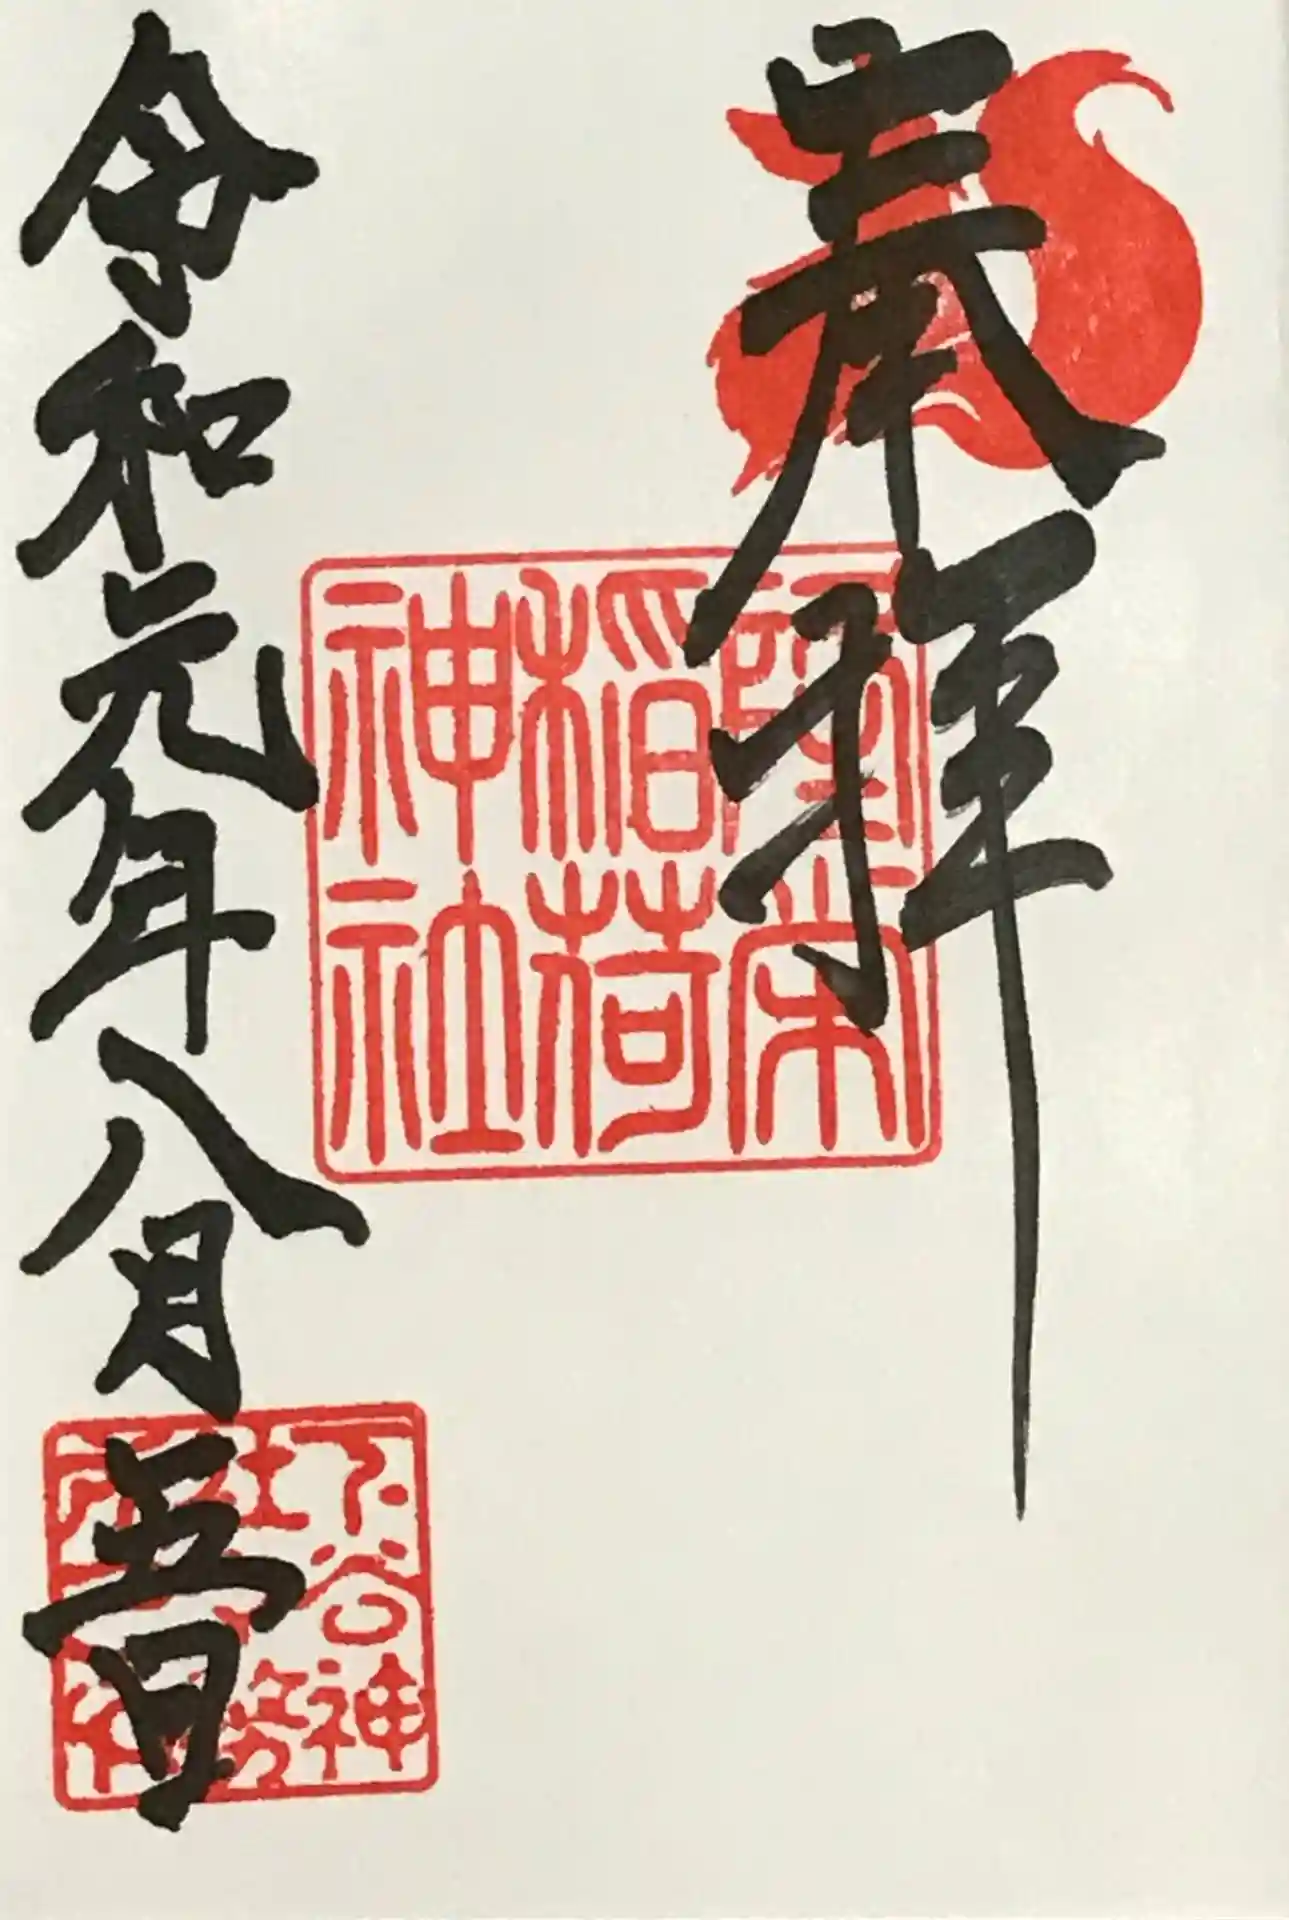 奉拝
隆栄
稲荷
神社
令和元年八月五日
下谷神
社務
所印